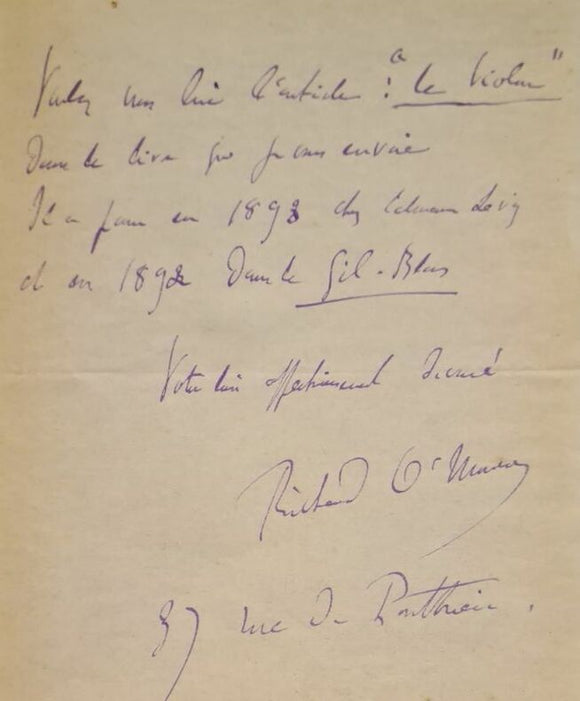 Voulez vous lire l'article : "le Violon"
Dans le livre que je vous envoie
Il a paru en 1893 chez Calmann Levy
et en 1892 Dans le Gil-Blas
Votre bien affectionné dévoué
Richard O'Monroy
37 rue de Ponthieu.